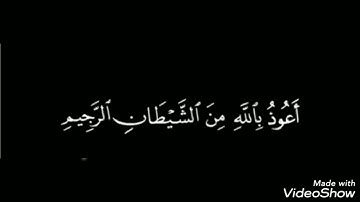 أَعُوذُ بِٱللَّهِ مِنَ ٱلشَّيْطَانِ ٱلرَّجِيمِ
Made with
VideoShow